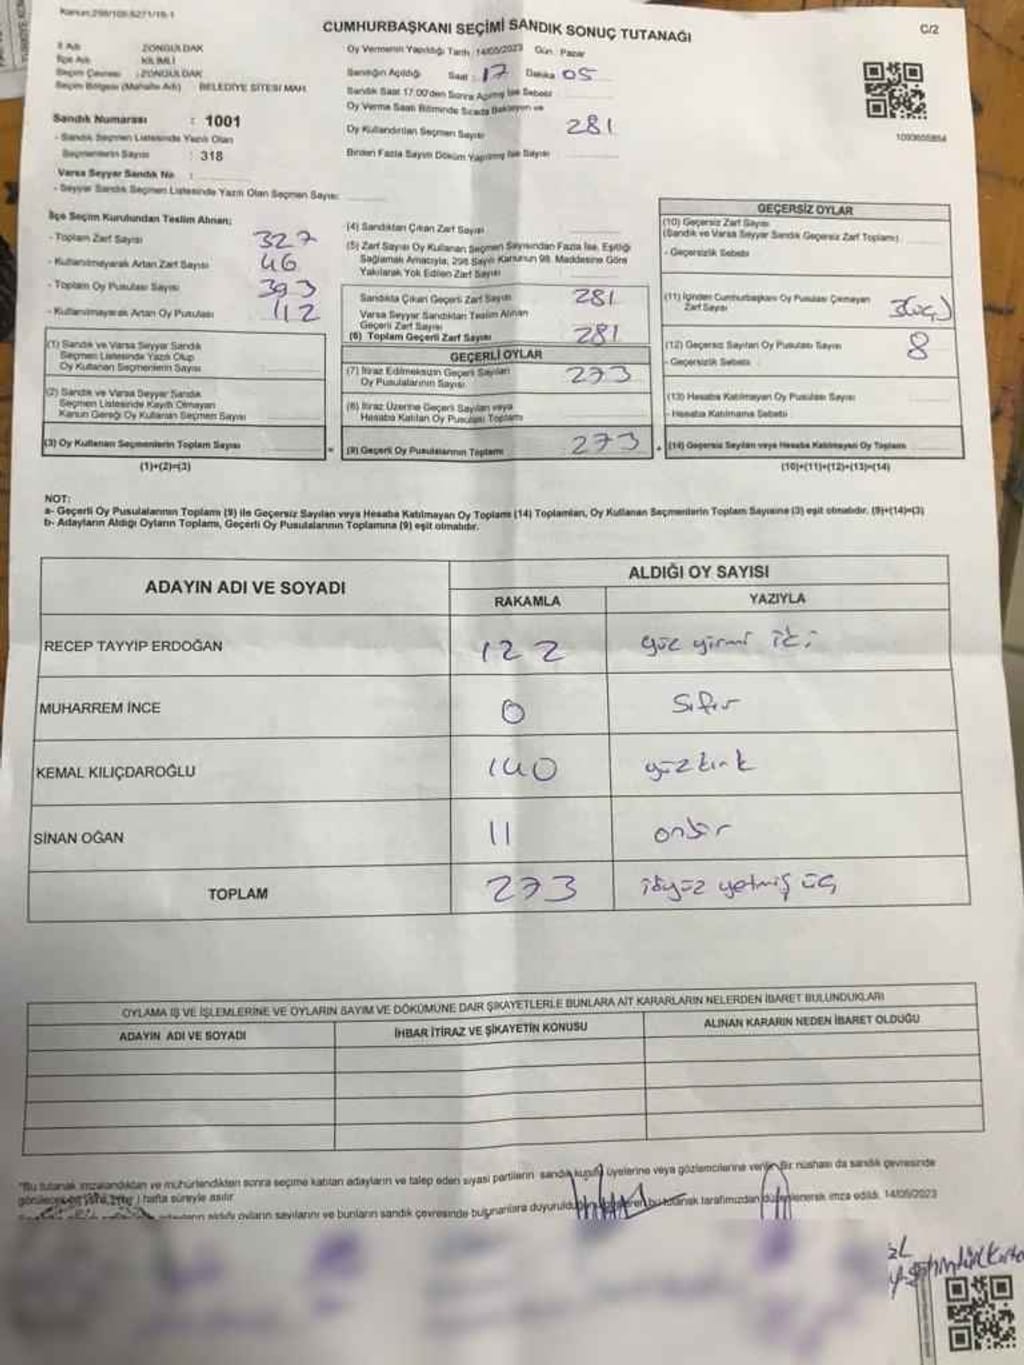 CUMHURBAŞKANI SEÇİMİ SANDIK SONUÇ TUTANAĞI
C/2
İl Adı ZONGULDAK
İlçe Adı KİLİMLİ
Seçim Çevresi : ZONGULDAK
Seçim Bölgesi (Mahalle Adı) BELEDİYE SİTESİ MAH.
Sandık Numarası : 1001
- Sandık Seçmen Listesinde Yazılı Olan
Seçmenlerin Sayısı : 318
Varsa Seyyar Sandık No :
- Seyyar Sandık Seçmen Listesinde Yazılı Olan Seçmen Sayısı:
Oy Vermenin Yapıldığı Tarih : 14/05/2023 Gün : Pazar
Sandığın Açıldığı Saat : 17 Dakika 05
Sandık Saat 17:00'den Sonra Açılmış İse Sebebi
Oy Verme Saati Bitiminde Sırada Bekleyen ve
Oy Kullandırılan Seçmen Sayısı 281
Birden Fazla Sayım Döküm Yapılmış İse Sayısı
İlçe Seçim Kurulundan Teslim Alınan;
- Toplam Zarf Sayısı 327
- Kullanılmayarak Artan Zarf Sayısı 46
- Toplam Oy Pusulası Sayısı 393
- Kullanılmayarak Artan Oy Pusulası 112
(1) Sandık ve Varsa Seyyar Sandık
Seçmen Listesinde Yazılı Olup
Oy Kullanan Seçmenlerin Sayısı
(2) Sandık ve Varsa Seyyar Sandık
Seçmen Listesinde Kayıtlı Olmayan
Kanun Gereği Oy Kullanan Seçmen Sayısı
(3) Oy Kullanan Seçmenlerin Toplam Sayısı
(1)+(2)=(3)
(4) Sandıktan Çıkan Zarf Sayısı
(5) Zarf Sayısı Oy Kullanan Seçmen Sayısından Fazla İse, Eşitliği
Sağlamak Amacıyla, 298 Sayılı Kanunun 98. Maddesine Göre
Yakılarak Yok Edilen Zarf Sayısı
Sandıkta Çıkan Geçerli Zarf Sayısı 281
Varsa Seyyar Sandıktan Teslim Alınan
Geçerli Zarf Sayısı
(6) Toplam Geçerli Zarf Sayısı 281
GEÇERLİ OYLAR
(7) İtiraz Edilmeksizin Geçerli Sayılan
Oy Pusulalarının Sayısı 273
(8) İtiraz Üzerine Geçerli Sayılan veya
Hesaba Katılan Oy Pusulası Toplamı
(9) Geçerli Oy Pusulalarının Toplamı 273
GEÇERSİZ OYLAR
(10) Geçersiz Zarf Sayısı
(Sandık ve Varsa Seyyar Sandık Geçersiz Zarf Toplamı)
- Geçersizlik Sebebi
(11) İçinden Cumhurbaşkanı Oy Pusulası Çıkmayan
Zarf Sayısı 3(üç)
(12) Geçersiz Sayılan Oy Pusulası Sayısı 8
- Geçersizlik Sebebi
(13) Hesaba Katılmayan Oy Pusulası Sayısı
- Hesaba Katılmama Sebebi
(14) Geçersiz Sayılan veya Hesaba Katılmayan Oy Toplamı
(10)+(11)+(12)+(13)=(14)
NOT:
a- Geçerli Oy Pusulalarının Toplamı (9) ile Geçersiz Sayılan veya Hesaba Katılmayan Oy Toplamı (14) Toplamları, Oy Kullanan Seçmenlerin Toplam Sayısına (3) eşit olmalıdır. (9)+(14)=(3)
b- Adayların Aldığı Oyların Toplamı, Geçerli Oy Pusulalarının Toplamına (9) eşit olmalıdır.
ADAYIN ADI VE SOYADI
ALDIĞI OY SAYISI
RAKAMLA YAZIYLA
RECEP TAYYİP ERDOĞAN 122 yüz yirmi iki
MUHARREM İNCE 0 Sıfır
KEMAL KILIÇDAROĞLU 140 yüzkırk
SİNAN OĞAN 11 onbir
TOPLAM 273 ikiyüz yetmiş üç
OYLAMA İŞ VE İŞLEMLERİNE VE OYLARIN SAYIM VE DÖKÜMÜNE DAİR ŞİKAYETLERLE BUNLARA AİT KARARLARIN NELERDEN İBARET BULUNDUKLARI
ADAYIN ADI VE SOYADI İHBAR İTİRAZ VE ŞİKAYETİN KONUSU ALINAN KARARIN NEDEN İBARET OLDUĞU
"Bu tutanak imzalandıktan ve mühürlendikten sonra seçime katılan adayların ve talep eden siyasi partilerin sandık kurulu üyelerine veya gözlemcilerine verilir. Bir nüshası da sandık çevresinde
hafta süreyle asılır.
adayların aldığı oyların sayılarını ve bunların sandık çevresinde bulunanlara duyurulduğunu bu tutanak tarafımızdan düzenlenerek imza edildi. 14/05/2023